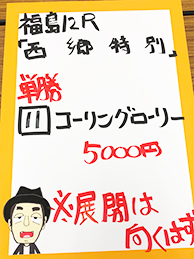 福島12R
「西郷特別」
単勝
11 コーリングローリー
5000円
※展開は
向くはず